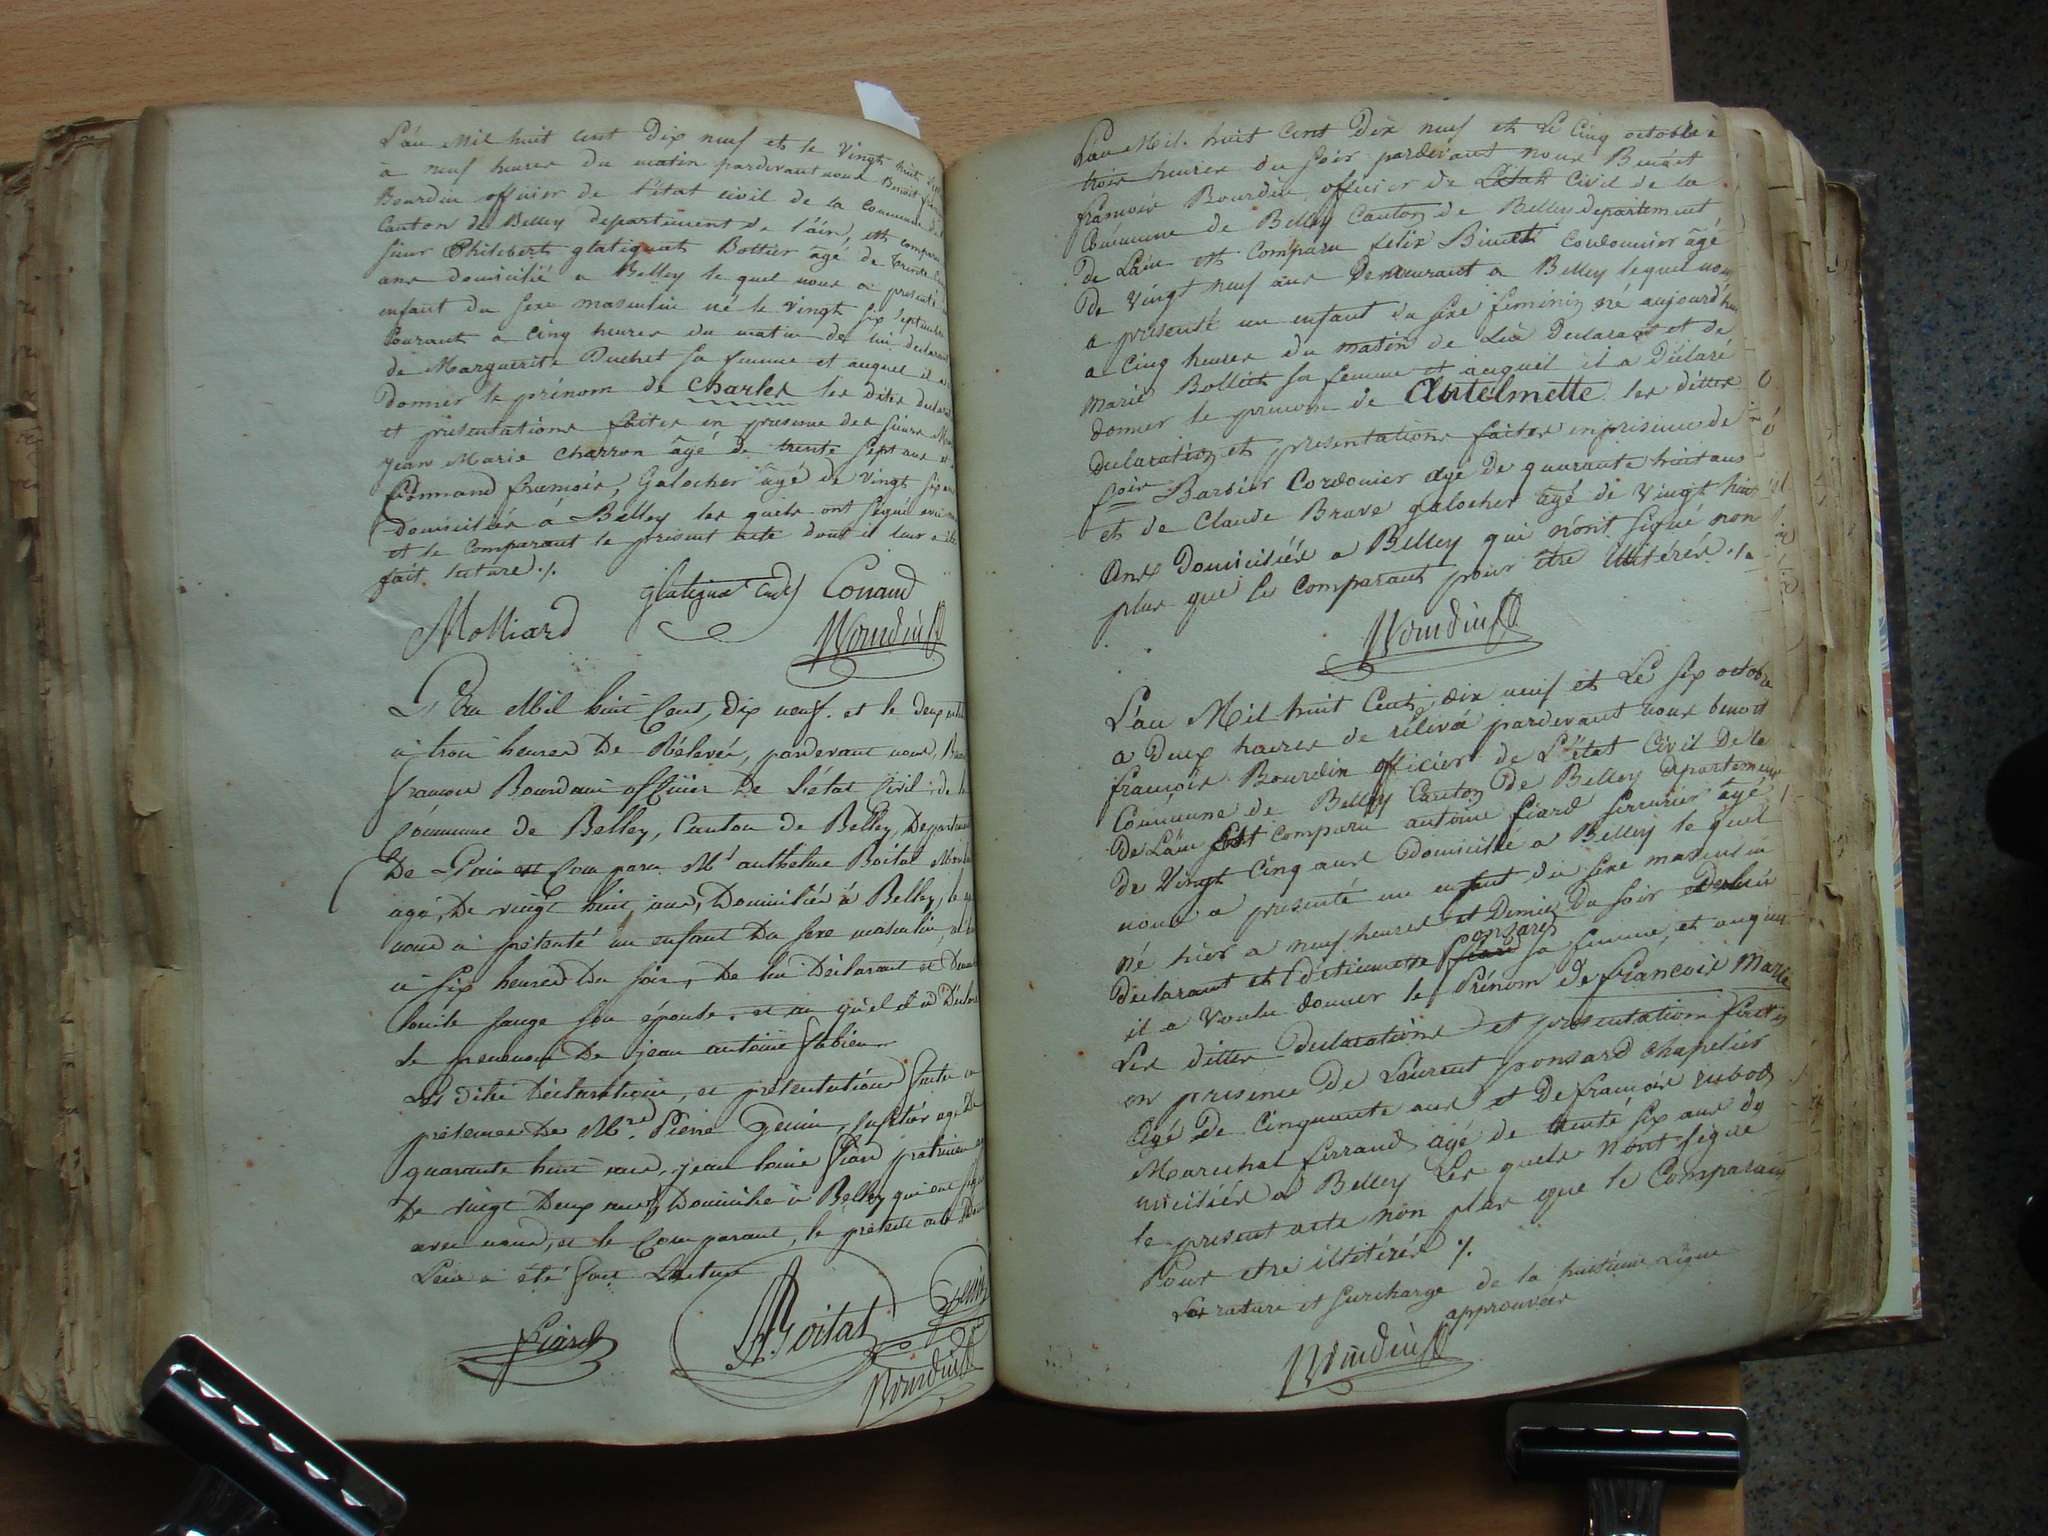 L'an Mil huit cent Dix neuf et le Vingt huit
à neuf heures du matin pardevant nous Benoit
Bourdin officier de l'état civil de la Commune
Canton de Belley departement de l'ain, est comparu
sieur Philibert glatignat Bottier âgé de trente
ans domicilié a Belley le quel nous a presenté
enfant du sexe masculin né le Vingt six septembre
Courant a cinq heures du matin de lui declarant
de Marguerite Puchet sa femme et auquel il a
donner le prénom de Charles les dites
et présentations faites en presence des sieurs
jean Marie Charron âgé de trente sept ans et
françois, Galocher âgé de Vingt six ans
domiciliés à Belley les quels ont signé avec
et le Comparant le présent acte dont il leur a été
fait lecture ./.
glatignat Conand
Molliard Bourdin
L'An Mil huit Cent, Dix neuf. et le deux
à trois heures De Rélevée, pardevant nous,
françois Bourdain officier De L'état Civil de la
Commune de Belley, Canton de Belley, Departement
De L'ain est Comparu Mr anthelme Boitat
agé, De vingt huit, ans, Domiciliée à Belley,
nous à présenté un enfant Du sexe masculin,
à six heures Du soir, De lui Déclarant et Dame
Louise sauge son épouse. et au quel il à Déclaré
le prenom De jean antoine fabien
Les dites Déclaration, et présentations faite en
présence De Mre. Pierre Genin, agé De
quarante huit ans, jean Louis fiard
De vingt Deux ans, Domicilie à Belley qui ont signé
avec nous, et le Comparant, le présent acte
Leur a été fait Lecture
Fiard ABoitat Genin
Bourdin
L'an Mil. huit cent Dix neuf et le Cinq octobre à
trois heures du soir pardevant nous Benoit
françois Bourdin officier de L'etat Civil de la
Commune de Belley Canton de Belley departement
de L'ain est comparu félix Binet Cordonnier âgé
de Vingt neuf ans Demeurant a Belley lequel nous
a présenté un enfant du sexe féminin né aujourd'hui
a cinq heures du matin de Lui Declarant et de
Marie Bolliet sa femme et auquel il a déclaré
donner le prenom de Antelmette les dittes
declaration et presentations faites en presence de
fois Barbier Cordonier agé de quarante huit ans
et de Claude Brave galocher âgé de Vingt huit
Ans Domiciliés a Belley qui n'ont signé non
plus que le Comparant pour être illitérés ./.
Bourdin
L'an Mil huit Cent, dix neuf et Le six octobre
a deux heures de rélévée pardevant nous benoit
françois Bourdin officier de L'état Civil De la
Commune de Belley Canton de Belley departement
De L'ain Est comparu antoine fiard serrurier âgé
de Vingt Cinq ans Domicilié a Belley le quel
nous a presenté un enfant du sexe masculin
né hier a neuf heures et Demie du soir De lui
Ponsard
Declarant et d'etiennette fiard sa femme, et auquel
il a Voulu donner le Prénom de François Marie
Les dittes declarations et presentations faites
en presence De Laurent ponsard chapelier
âgé De Cinquante ans et De françois rubod
Marechal ferrand âgé de trente six ans do
miciliés a Belley Les quels n'ont signé
le present acte non plus que le Comparant
Pour etre illitérés ./.
La rature et surcharge de la huitieme Ligne
approuvée
Bourdin